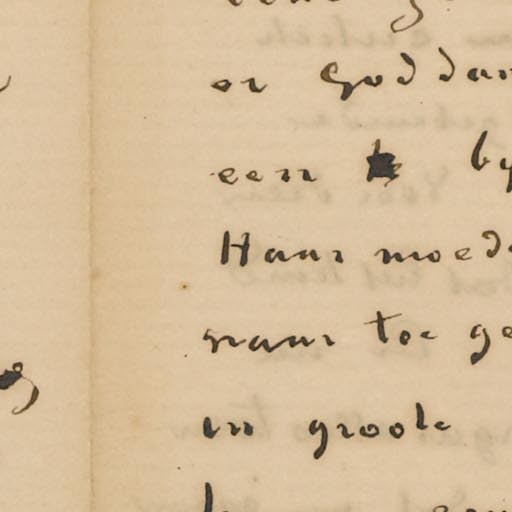 er God dan
een by
Haar moed
naar toe ge
in groote